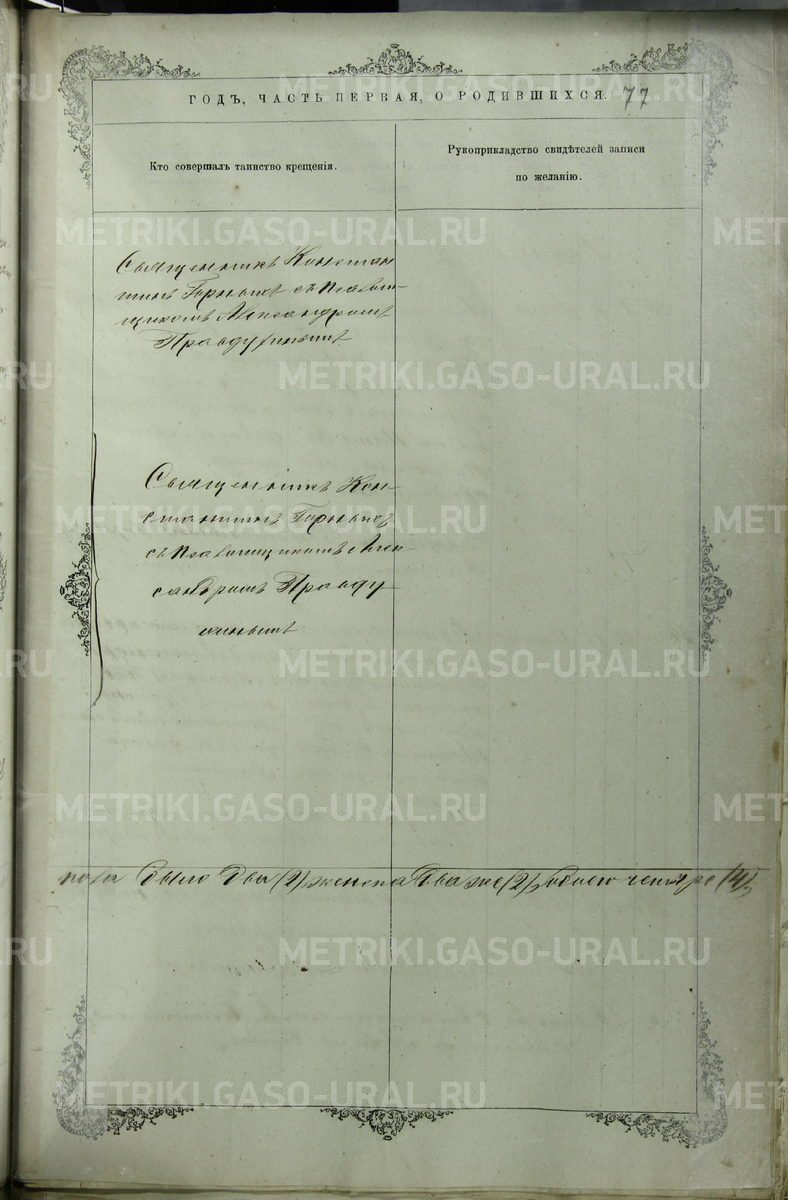 ГОДЪ, ЧАСТЬ ПЕРВАЯ, О РОДИВШИХСЯ. 77
Кто совершалъ таинство крещенія.
Рукоприкладство свидѣтелей записи
по желанію.
Священникъ Констан
тинъ Горныхъ съ Псаλом-
щикомъ Александромъ
Правдухинымъ
Священникъ Кон-
стантинъ Горныхъ
съ Псаломщикомъ Алек
сандромъ Правду
хинымъ
пола было два (2) женска два же (2), обоего четыре (4).
METRIKI.GASO-URAL.RU